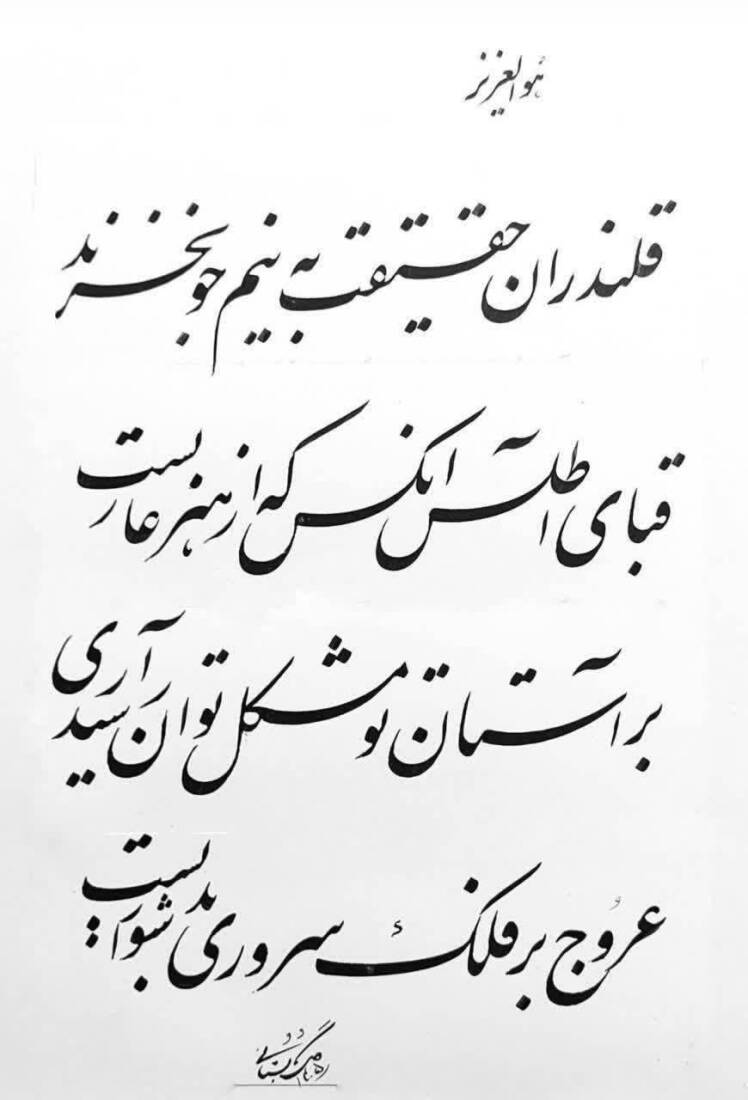 هوالعزیز
قلندران حقیقت به نیم جو نخرند
قبای اطلس آنکس که از هنر عاریست
بر آستان تو مشکل توان رسید آری
عروج بر فلکِ سروری بدشواریست